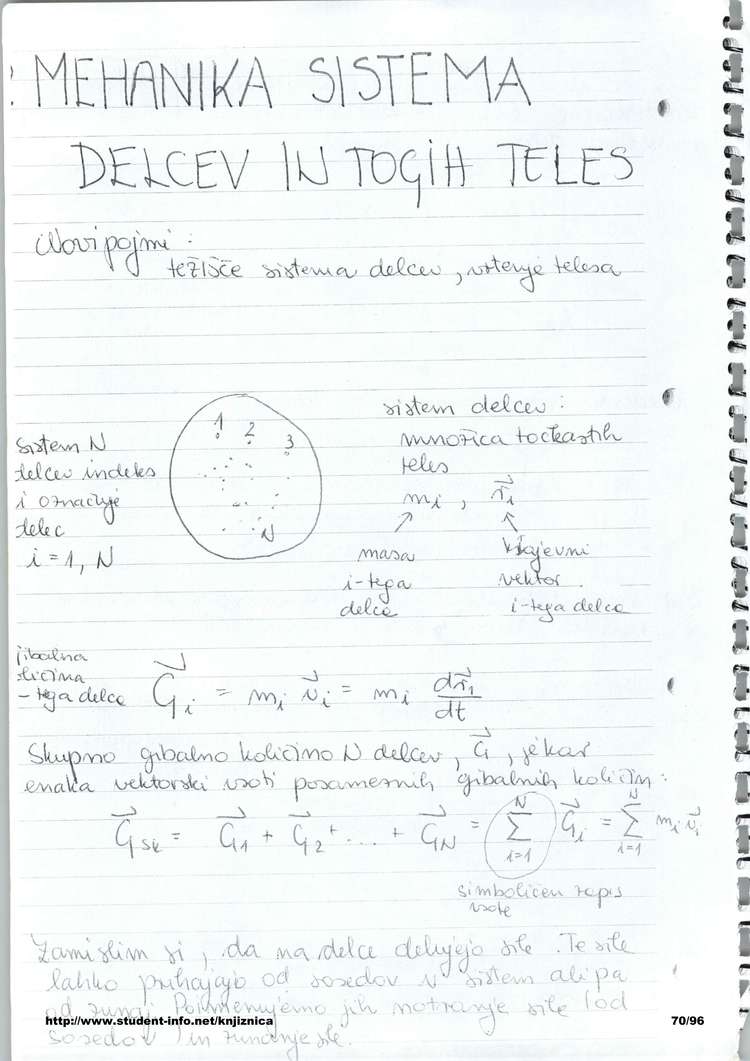 MEHANIKA SISTEMA
DELCEV IN TOGIH TELES
Novi pojmi:
težišče sistema delcev, vrtenje telesa
sistem N
delcev indeks
i označuje
delec
i = 1, N
1 2 3
N
sistem delcev:
množica točkastih
teles
mi , r⃗i
masa
i-tega
delca
krajevni
vektor
i-tega delca
gibalna
količina
i-tega delca
G⃗i = mi v⃗i = mi dr⃗i/dt
Skupno gibalno količino N delcev, G⃗, je kar
enaka vektorski vsoti posameznih gibalnih količin:
G⃗sk = G⃗1 + G⃗2 + ... + G⃗N = Σ(i=1, N) G⃗i = Σ(i=1, N) mi v⃗i
simboličen zapis
vsote
Zamislim si, da na delce delujejo sile. Te sile
lahko prihajajo od sosedov v sistem ali pa
od zunaj. Poimenujemo jih notranje sile (od
sosedov) in zunanje sile.
http://www.student-info.net/knjiznica
70/96